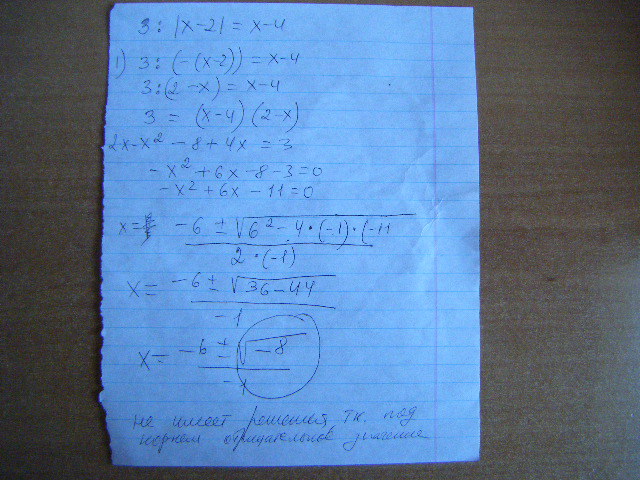 3 : |x-2| = x-4
1) 3 : (-(x-2)) = x-4
3 : (2-x) = x-4
3 = (x-4) (2-x)
2x-x² - 8 + 4x = 3
-x² + 6x - 8 - 3 = 0
-x² + 6x - 11 = 0
x = -6 ± √6² - 4 · (-1) · (-11
2 · (-1)
x = -6 ± √36-44
-1
x = -6 ± √-8
-1
не имеет решения, т.к. под
корнем отрицательное значение